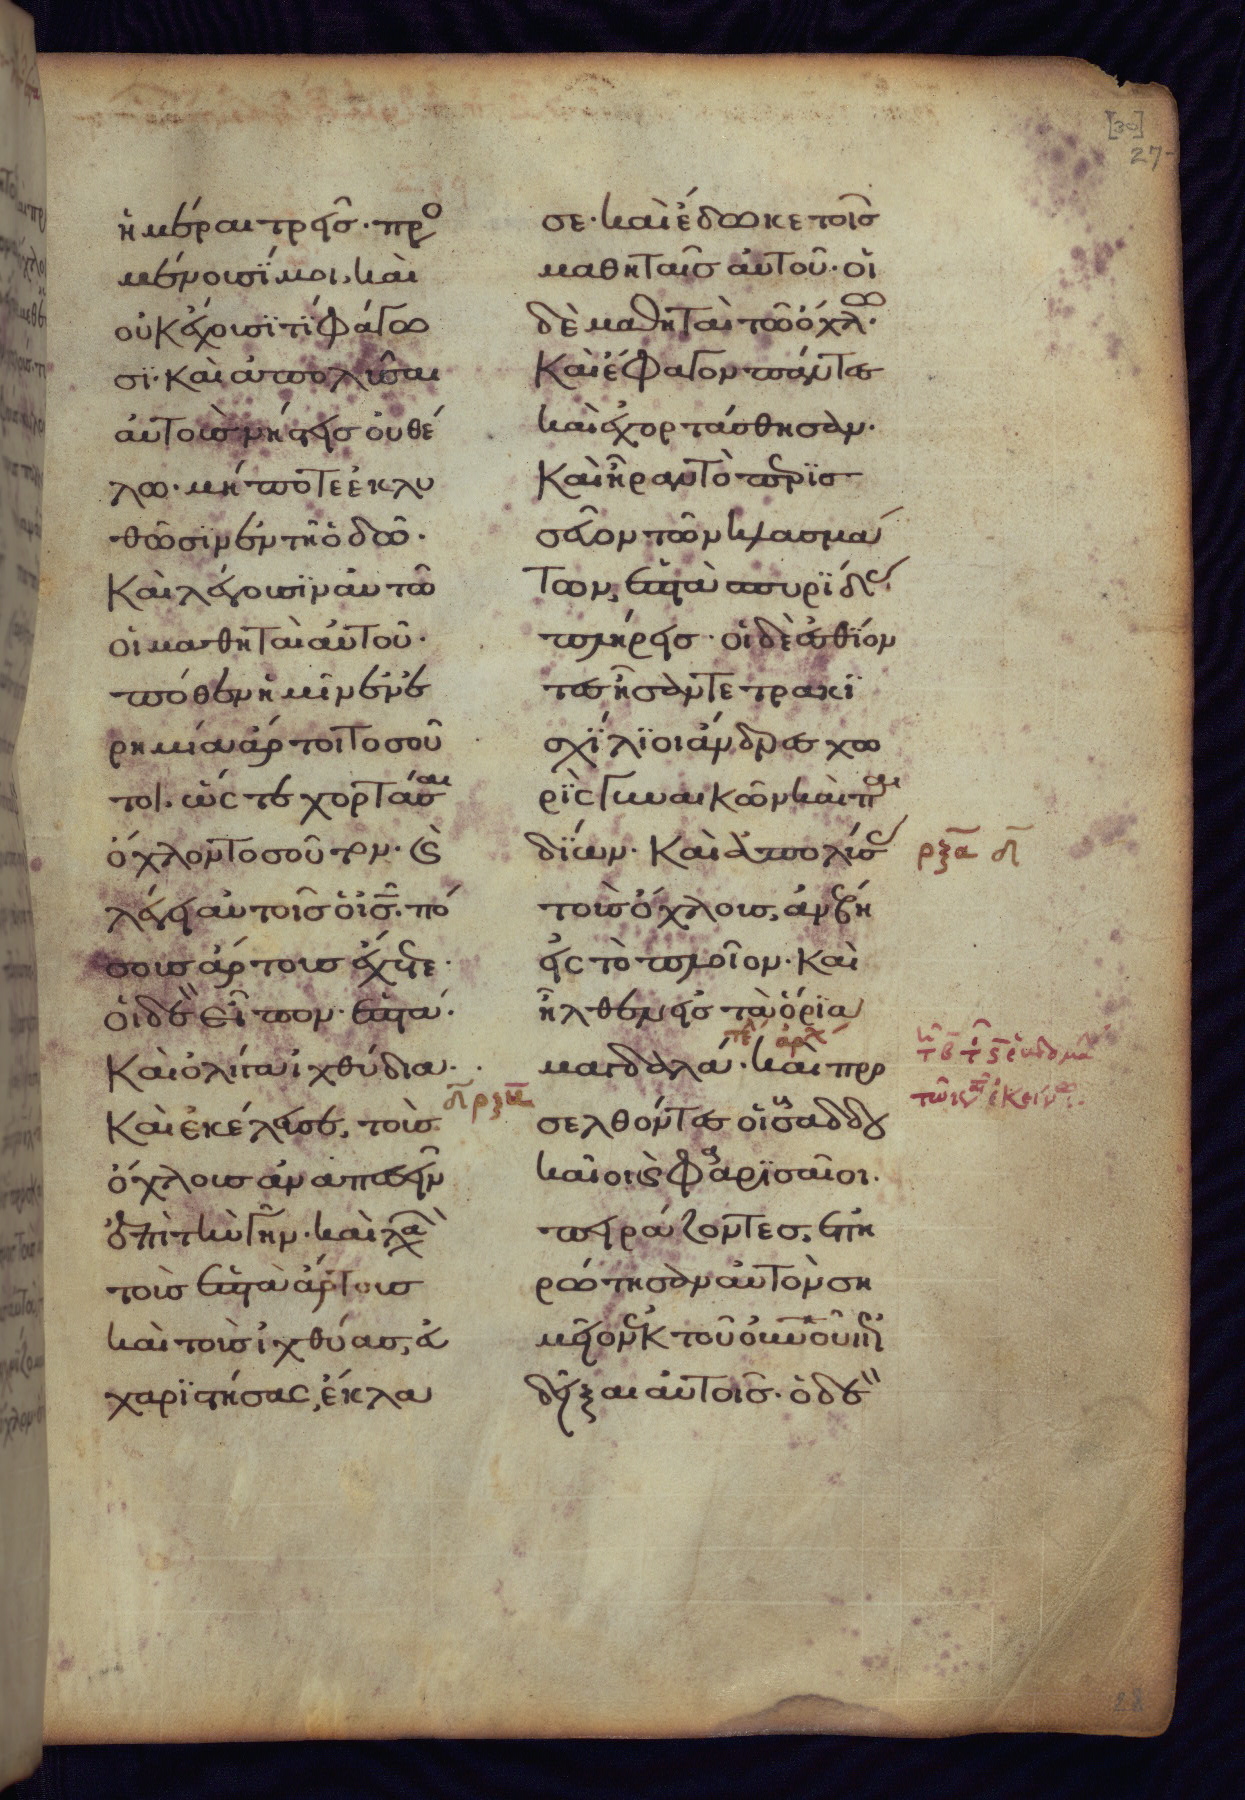 ἡμέραι τρεῖσ· προ
μένουσϊ μοι, καὶ
οὐκ ἔχουσϊ τί φάγω
σϊ· καὶ ἀπολῦσαι
αὐτοὺσ νήστεισ οὐ θέ
λω· μήποτε ἐκλυ
θῶσϊν ἐν τῆ ὁδῶ·
Καὶ λέγουσϊν αὐτῶ
οἱ μαθηταὶ αὐτοῦ·
πόθεν ἡμῖν ἐν ἐ
ρημία ἄρτοι τοσοῦ
τοι· ὥστε χορτάσαι
ὄχλον τοσοῦτον· καὶ
λέγει αὐτοῖσ ὁ ισ· πό
σουσ ἄρτουσ ἔχετε·
οἱ δὲ εἶπον· ἑπτά·
Καὶ ὀλίγα ἰχθύδια·
Καὶ ἐκέλευσε, τοῖσ
ὄχλοισ ἀναπεσεῖν
ἐπὶ τὴν γῆν· καὶ λαβὼ
τοὺσ ἑπτὰ ἄρτουσ
καὶ τοὺσ ἰχθύασ, εὐ
χαρϊστήσας, ἔκλα
σε· καὶ ἔδωκε τοῖσ
μαθηταῖσ αὐτοῦ· οἱ
δὲ μαθηταὶ τῶ ὄχλω·
Καὶ ἔφαγον πάντεσ
καὶ ἐχορτάσθησαν·
Καὶ ἦραν τὸ περϊσ
σεῦον τῶν κλασμά
των, ἑπτὰ σπυρϊδασ
πλήρεισ· οἱ δὲ ἐσθίον
τεσ ἦσαν τετρακϊ
σχίλϊοι ἄνδρεσ χω
ρϊς γυναικῶν καὶ παι
δϊων· Καὶ ἀπολύσασ
τοὺσ ὄχλουσ, ἀνέβη
εἰς τὸ πλοῖον· καὶ
ἦλθεν εἰσ τὰ ὅρϊα
μαγδαλά· καὶ προσ
σελθόντεσ οἱ σαδδου
καῖοι καὶ φαρϊσαῖοι·
πειράζοντεσ, ἐπη
ρώτησαν αὐτὸν ση
μεῖον ἐκ τοῦ οὐνοῦ ἐπι
δεῖξαι αὐτοῖσ· ὁ δὲ
ρξα δ
δ ρξα
τε αρχ
27
28